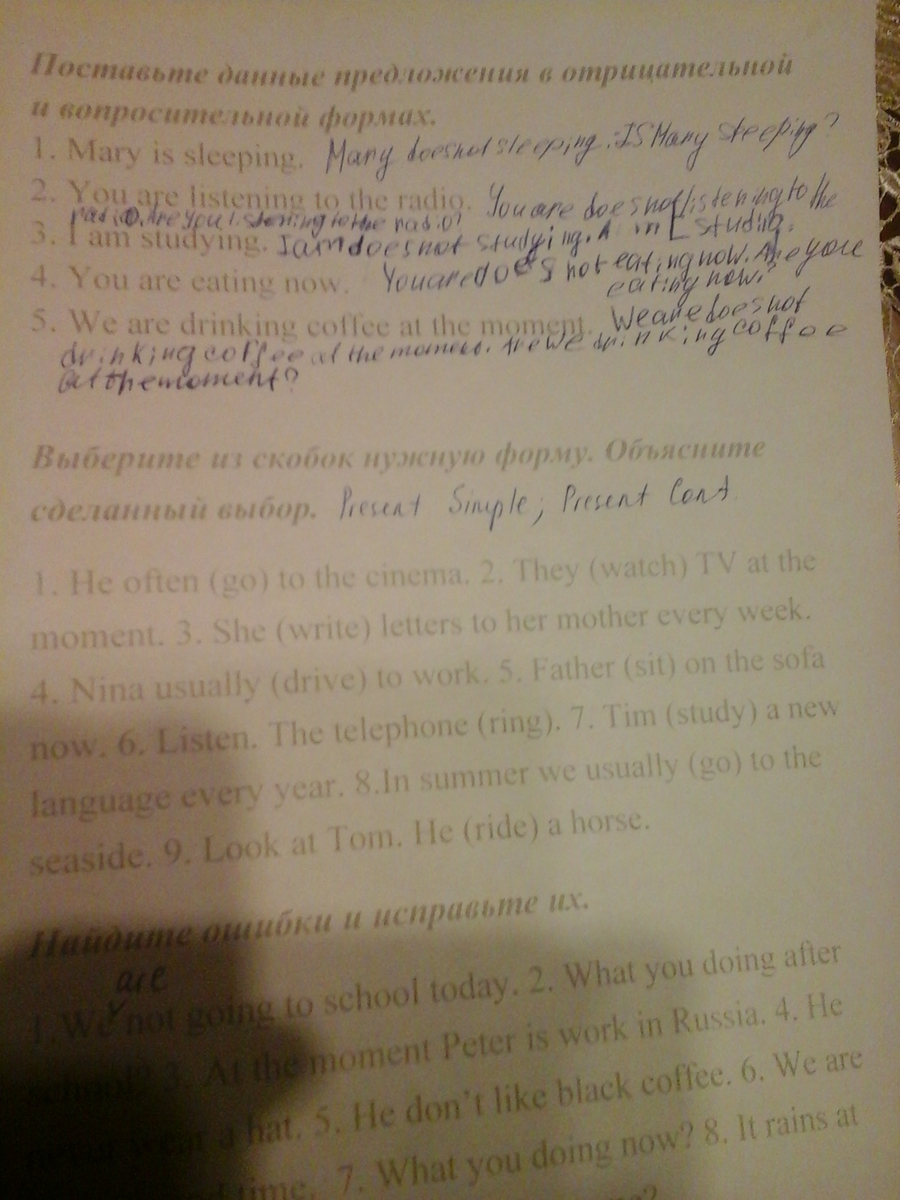 Поставьте данные предложения в отрицательной
и вопросительной формах.
1. Mary is sleeping. Mary doesnot sleeping. IS Mary sleeping?
2. You are listening to the radio. You are doesnot listening to the
radio. Are you listening to the radio?
3. I am studying. I am doesnot studying. Am I studing.
4. You are eating now. You are doES not eating now. Are you
eating now?
5. We are drinking coffee at the moment. We are does not
drinking coffee at the moment. Are we drinking coffee
at the moment?
Выберите из скобок нужную форму. Объясните
сделанный выбор. Present Simple; Present Cont
1. He often (go) to the cinema. 2. They (watch) TV at the
moment. 3. She (write) letters to her mother every week.
4. Nina usually (drive) to work. 5. Father (sit) on the sofa
now. 6. Listen. The telephone (ring). 7. Tim (study) a new
language every year. 8.In summer we usually (go) to the
seaside. 9. Look at Tom. He (ride) a horse.
Найдите ошибки и исправьте их.
are
1.We not going to school today. 2. What you doing after
school? 3. At the moment Peter is work in Russia. 4. He
never wear a hat. 5. He don't like black coffee. 6. We are
time. 7. What you doing now? 8. It rains at